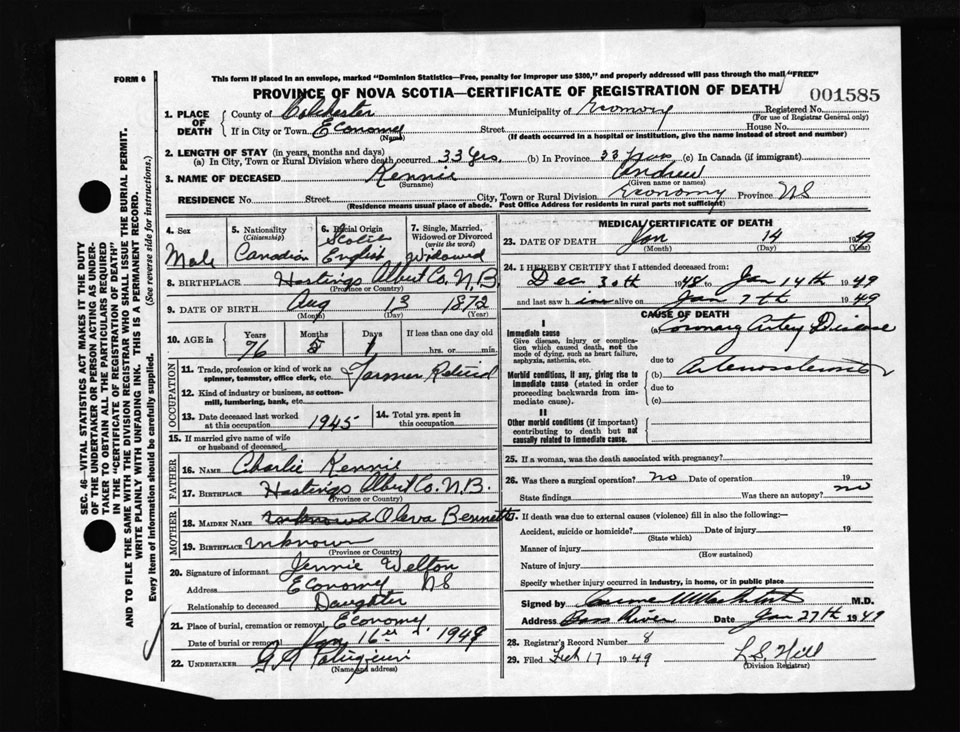 FORM 6
This form if placed in an envelope, marked "Dominion Statistics—Free, penalty for improper use $300," and properly addressed will pass through the mail "FREE"
PROVINCE OF NOVA SCOTIA—CERTIFICATE OF REGISTRATION OF DEATH
001585
1. PLACE OF DEATH County of Colchester Municipality of Economy Registered No.
(For use of Registrar General only)
If in City or Town Economy Street House No.
(Name) (If death occurred in a hospital or institution, give the name instead of street and number)
2. LENGTH OF STAY (in years, months and days)
(a) In City, Town or Rural Division where death occurred 33 yrs (b) In Province 33 years (c) In Canada (if immigrant)
3. NAME OF DECEASED Rennie Andrew
(Surname) (Given name or names)
RESIDENCE No. Street City, Town or Rural Division Economy Province NS
(Residence means usual place of abode. Post Office Address for residents in rural parts not sufficient)
4. Sex Male
5. Nationality (Citizenship) Canadian
6. Racial Origin Scotch English
7. Single, Married, Widowed or Divorced (write the word) Widowed
8. BIRTHPLACE Hastings Albert Co. N.B.
(Province or Country)
9. DATE OF BIRTH Aug 13 1872
(Month) (Day) (Year)
10. AGE in Years Months Days If less than one day old
76 5 1 hrs. or min.
OCCUPATION
11. Trade, profession or kind of work as spinner, teamster, office clerk, etc. Farmer Retired
12. Kind of industry or business, as cotton-mill, lumbering, bank, etc.
13. Date deceased last worked at this occupation 1945
14. Total yrs. spent in this occupation
15. If married give name of wife or husband of deceased
FATHER
16. NAME Charlie Rennie
17. BIRTHPLACE Hastings Albert Co. N.B.
(Province or Country)
MOTHER
18. MAIDEN NAME unknown Oleva Bennett
19. BIRTHPLACE Unknown
(Province or Country)
20. Signature of informant Jennie Welton
Address Economy NS
Relationship to deceased Daughter
21. Place of burial, cremation or removal Economy
Date of burial or removal Jan 16th 1949
22. UNDERTAKER
(Name and address)
MEDICAL CERTIFICATE OF DEATH
23. DATE OF DEATH Jan 14 1949
(Month) (Day) (Year)
24. I HEREBY CERTIFY that I attended deceased from:
Dec 30th 1948 to Jan 14th 1949
and last saw him alive on Jan 7th 1949
CAUSE OF DEATH
I
Immediate cause
Give disease, injury or complication which caused death, not the mode of dying, such as heart failure, asphyxia, asthenia, etc.
(a) Coronary Artery Disease
due to
Morbid conditions, if any, giving rise to immediate cause (stated in order proceeding backwards from immediate cause).
(b) Arteriosclerosis
due to
(c)
II
Other morbid conditions (if important) contributing to death but not causally related to immediate cause.
25. If a woman, was the death associated with pregnancy?
26. Was there a surgical operation? no Date of operation 19
State findings Was there an autopsy? no
27. If death was due to external causes (violence) fill in also the following:—
Accident, suicide or homicide? Date of injury 19
(State which)
Manner of injury
(How sustained)
Nature of injury
Specify whether injury occurred in industry, in home, or in public place
Signed by M.D.
Address Bass River Date Jan 27th 1949
28. Registrar's Record Number 8
29. Filed Feb 17 1949 L.S. Hill
(Division Registrar)
SEC. 46—VITAL STATISTICS ACT MAKES IT THE DUTY
OF THE UNDERTAKER OR PERSON ACTING AS UNDER-
TAKER TO OBTAIN ALL THE PARTICULARS REQUIRED
IN THE "CERTIFICATE OF REGISTRATION OF DEATH"
AND TO FILE THE SAME WITH THE DIVISION REGISTRAR WHO SHALL ISSUE THE BURIAL PERMIT.
WRITE PLAINLY WITH UNFADING INK. THIS IS A PERMANENT RECORD.
Every item of information should be carefully supplied. (See reverse side for instructions.)